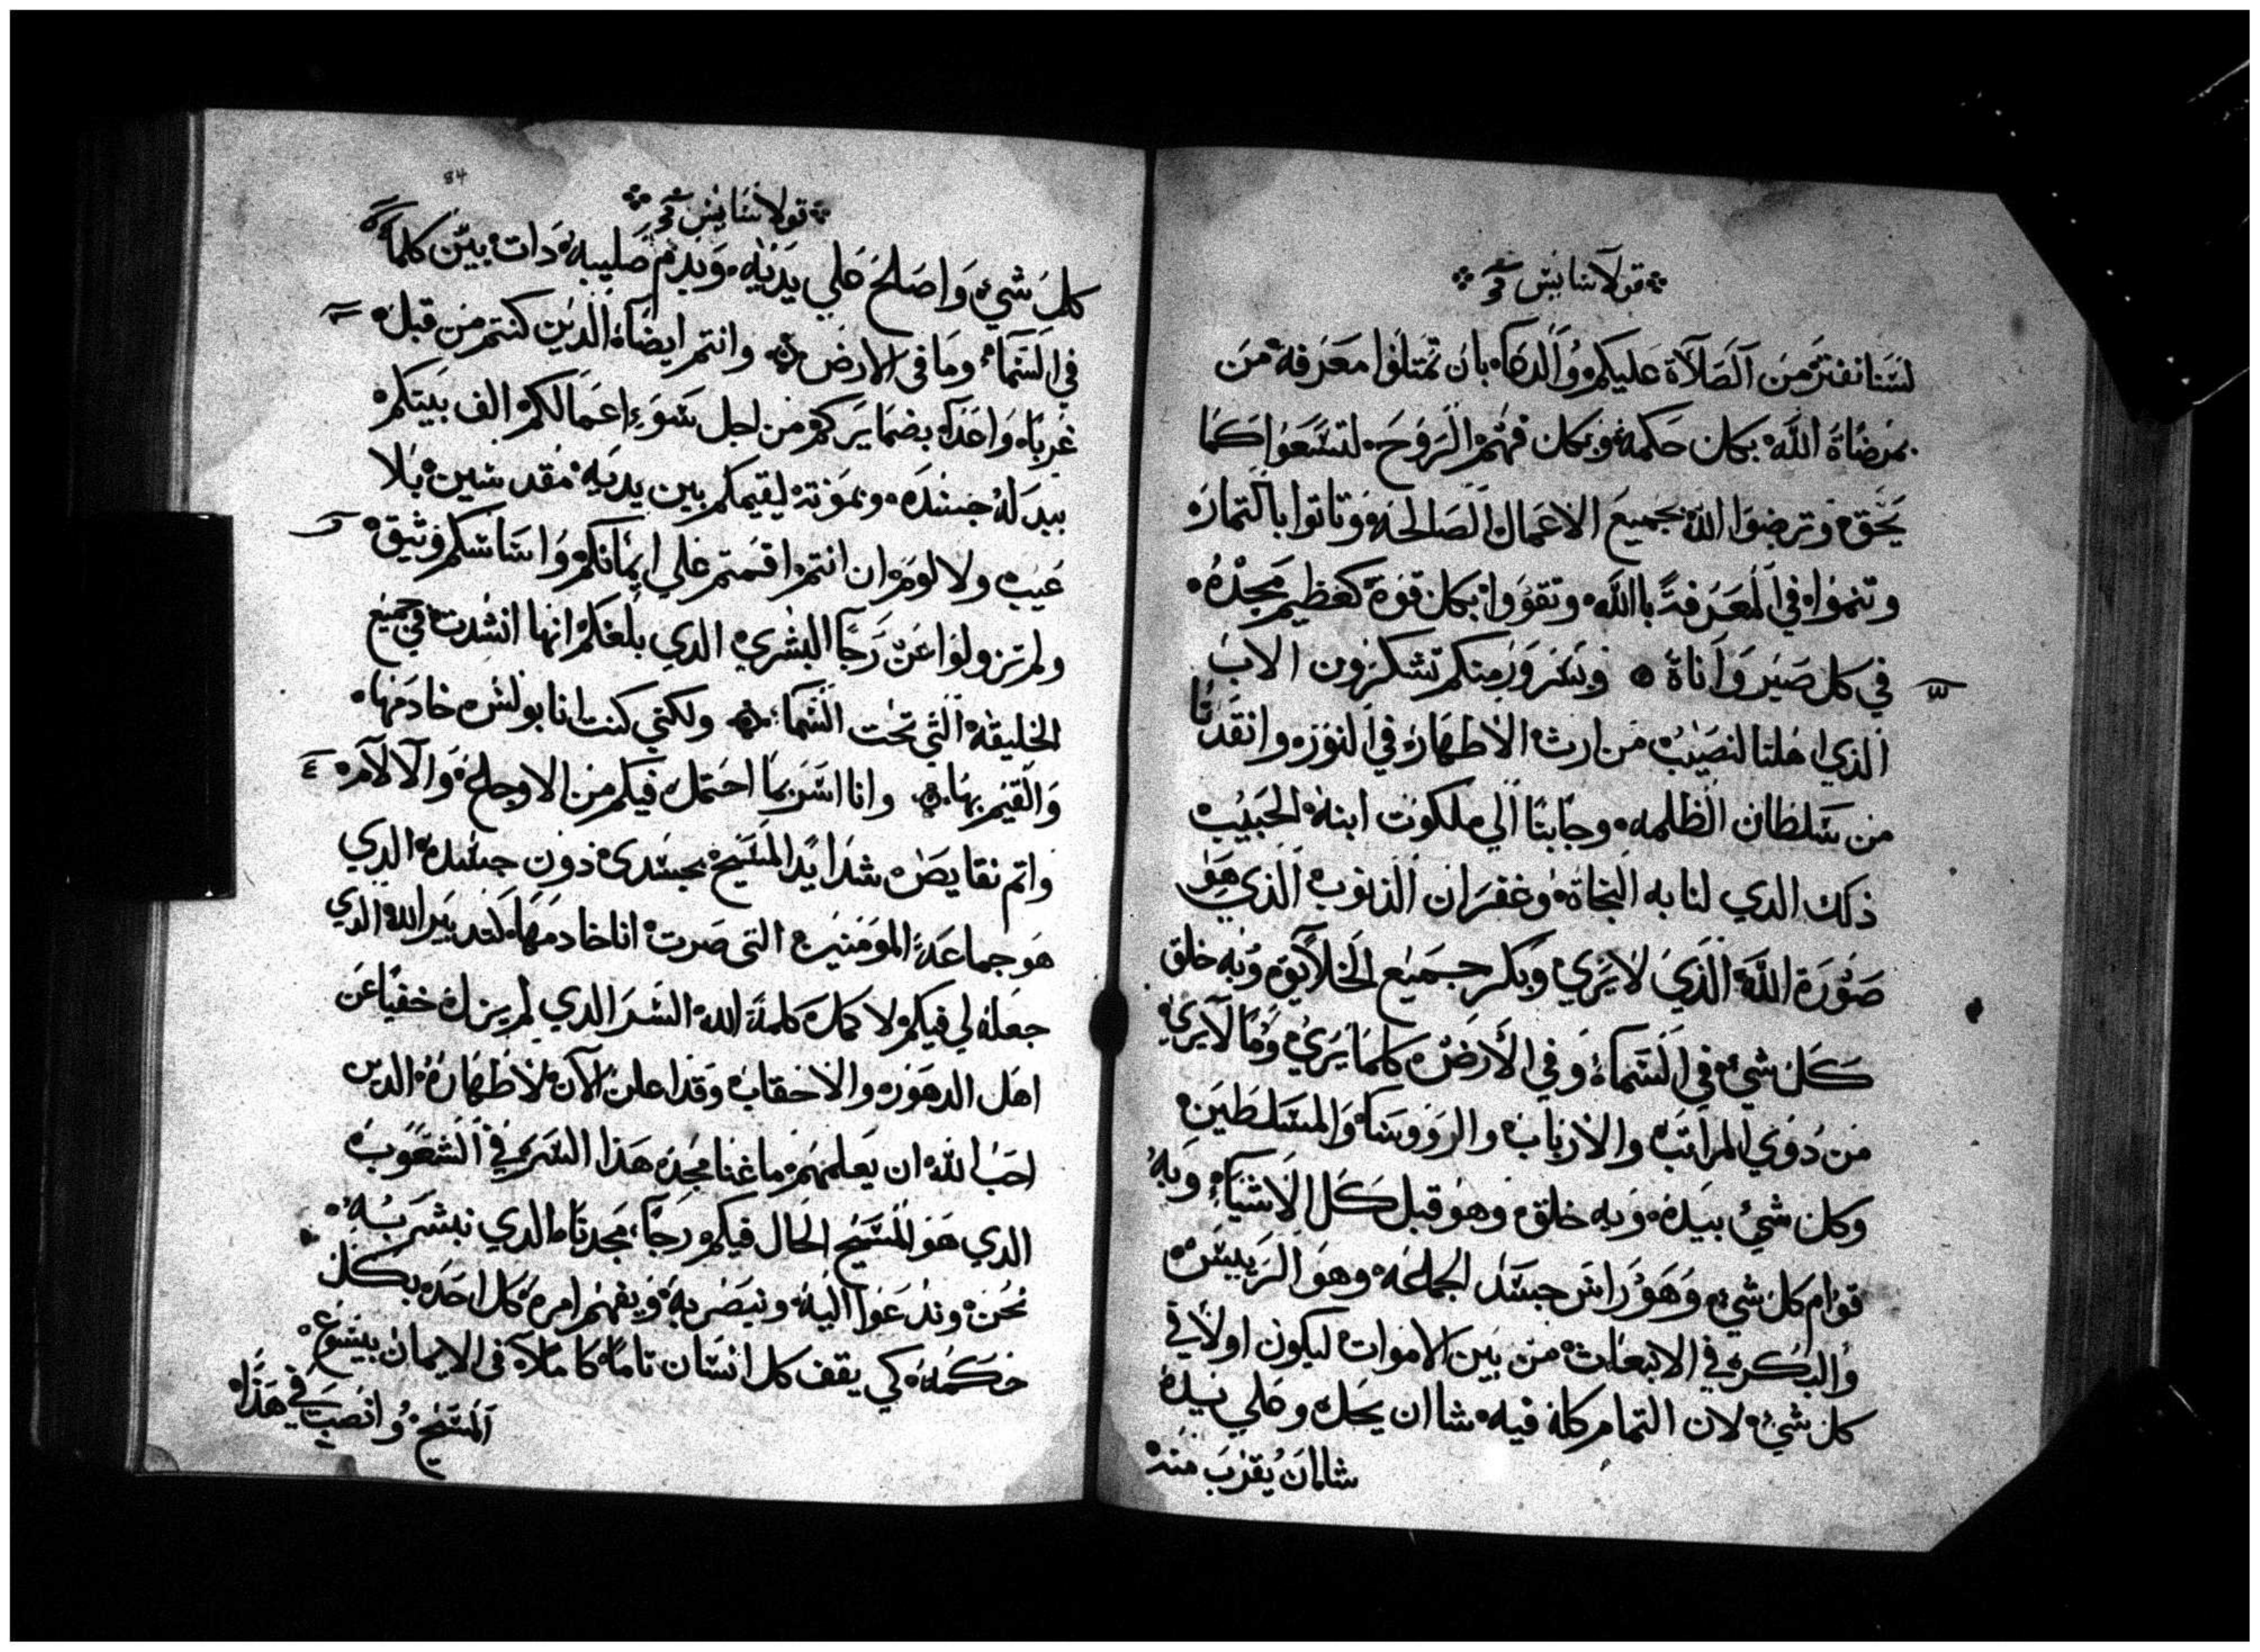 قولاسايس قح
لسنا نفتر من الصلاة عليكم والدعاء بان تمتلوا معرفة من
بمرضاة الله بكمان حكمة وبكمان فهم الروح لتسعوا كما
يحق وترضوا الله بجميع الاعمال الصالحة وتاتوا بالتمار
وتنموا في المعرفة بالله وتقووا بكل قوة كعظيم مجده
في كل صبر واناة وبسرور منكم تشكرون الاب
الذي اهلنا لنصيب من ارث الاطهار في النور وانقدنا
من سلطان الظلمه وجابنا الي ملكوت ابنه الحبيب
ذلك الدي لنا به النجاة وغفران الذنوب الذي هو
صورة الله الذي لا يري وبكر جميع الخلايق وبه خلق
كل شيء في السماء وفي الارض كلما يري وما لا يري
من دوي المراتب والارباب والرووسا والمسلطين
وكل شيء بيده وبه خلق وهو قبل كل الاشياء وبه
قوام كل شيء وهو راس جسد الجماعه وهو الرييس
والبكر في الانبعاث من بين الاموات ليكون اولا في
كل شيء لان التمام كله فيه شا ان يحل وعلي يده
شا ان يقرب منه
84
قولاسايس قح
كل شيء واصلح علي يديه وبدم صليبه دات بين كلما
في السماء وما في الارض وانتم ايضا الذين كنتم من قبل
غربا واعدا بضمايركم من اجل سوء اعمالكم الف بينكم
بيدله جسده وبموته ليقيمكم بين يديه مقدسين بلا
عيب ولا لوم ان انتم اقمتم علي ايمانكم واساسكم وثيق
ولم تزولوا عن رجا البشري الدي بلغكم انها انشدت في جميع
الخليقة التي تحت السماء ولكني كنت انا بولس خادمها
والقيم بها وانا اسر بما احتمل فيكم من الاوجاع والالام
واتم نقايص شدايد المسيح بجسدي دون جسده الدي
هو جماعة المومنين التي صرت انا خادمها لتدبير الله الدي
جعله لي فيكم لا كمل كلمة الله السر الدي لم يزل خفيا عن
اهل الدهور والاحقاب وقد اعلن الان لاطهاره الدين
احب الله ان يعلمهم ما غنا مجد هذا السر في الشعوب
الدي هو المسيح الحال فيكم رجا مجدنا الدي نبشر به
نحن وندعوا اليه ونبصر به ويفهم امره كل احد بكل
حكمة كي يقف كل انسان تاما كاملا في الايمان بيسوع
المسيح وانصب في هذا